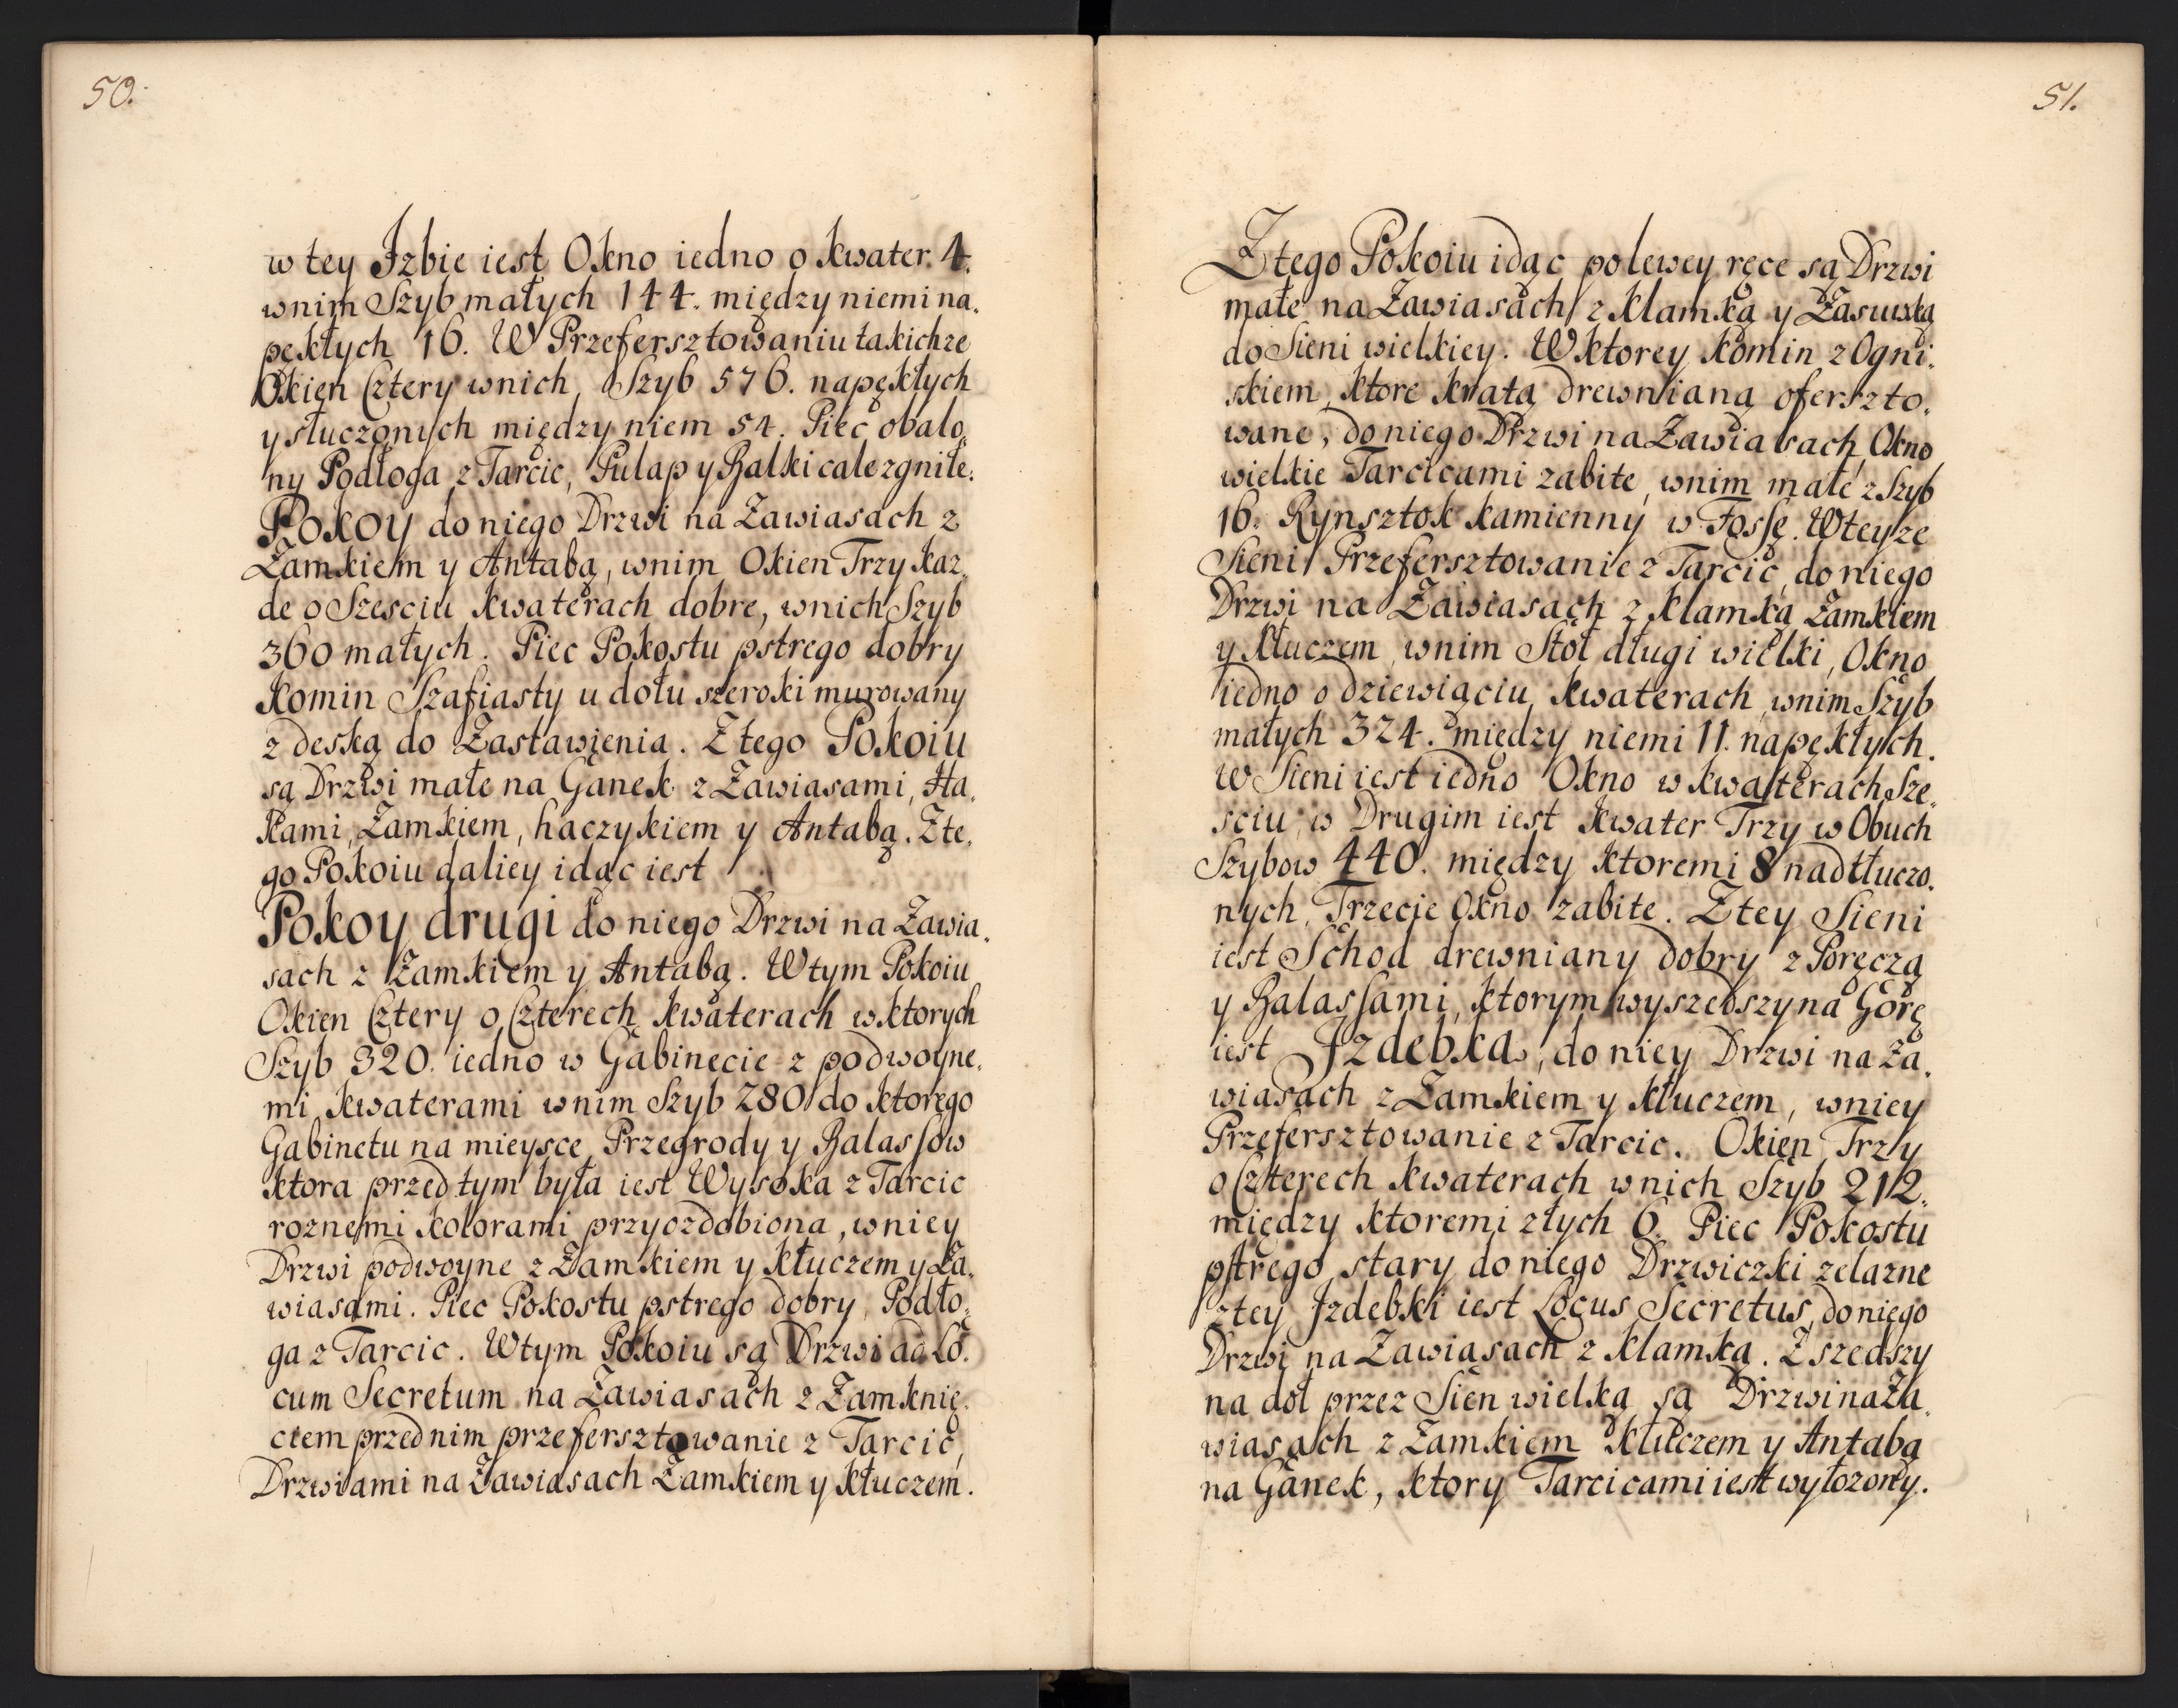 50.
w tey Izbie iest Okno iedno o kwater. 4.
wnim Szyb małych 144. między niemi na.
pękłych 16. W Przefersztowaniu takichze
Okien Cztery wnich Szyb 576. napękłych
y stuczonych między niem 54. Piec obalo.
ny Podłoga z Tarcic, Pulap y Balki cale zgniłe.
Pokoy do niego Drzwi na Zawiasach z
Zamkiem y Antabą, wnim Okien Trzy kaz.
de o Szesciu kwaterach dobre, wnich Szyb
360 małych. Piec Pokostu pstrego dobry
Komin Szafiasty u dołu szeroki murowany
z deską do Zastawienia. Z tego Pokoiu
są Drzwi małe na Ganek z Zawiasami, Ha.
kami, Zamkiem, haczykiem y Antabą. Zte.
go Pokoiu daliey idąc iest
Pokoy drugi do niego Drzwi na Zawia.
sach z Zamkiem y Antabą. W tym Pokoiu
Okien Cztery o Czterech kwaterach wktorych
Szyb 320. iedno w Gabinecie z podwoyne.
mi kwaterami wnim Szyb 280 do ktorego
Gabinetu na mieysce Przegrody y Balassow
ktora przed tym była iest Wysoka z Tarcic
roznemi kolorami przyozdobiona, wniey
Drzwi podwoyne z Zamkiem y Kłuczem y Za.
wiasami. Piec Pokostu pstrego dobry, Podło.
ga z Tarcic. Wtym Pokoiu są Drzwi ad Lo.
cum Secretum na Zawiasach z Zamknię.
ciem przednim przefersztowanie z Tarcic,
Drzwiami na Zawiasach Zamkiem y Kłuczem.
51.
Z tego Pokoiu idąc polewey ręce są Drzwi
małe na Zawiasach z Klamką y Zasuwką
do Sieni wielkiey. Wktorey Komin z Ogni.
skiem, ktore kratą drewnianą oferszto.
wane, do niego Drzwi na Zawiasach, Okno
wielkie Tarcicami zabite, wnim małe z Szyb
16. Rynsztok kamienny w Fossę. Wteyze
Sieni Przefersztowanie z Tarcic, do niego
Drzwi na Zawiasach z Klamką Zamkiem
y Kłuczem, wnim Stół długi wielki, Okno
iedno o dziewiąciu kwaterach, wnim Szyb
małych 324. między niemi 11. napękłych.
W Sieni iest iedno Okno w kwaterach Sze.
sciu, w Drugim iest kwater Trzy w Obuch
Szybow 440. między ktoremi 8 nadtłuczo.
nych, Trzecie Okno zabite. Z tey Sieni
iest Schod drewniany dobry z Poręczą
y Balassami, ktorym wyszedszy na Górę
iest Izdebka, do niey Drzwi na Za.
wiasach z Zamkiem y Kłuczem, wniey
Przefersztowanie z Tarcic. Okien Trzy
o Czterech kwaterach wnich Szyb 212.
między ktoremi złych 6. Piec Pokostu
pstrego stary do niego Drzwiczki zelazne
ztey Izdebki iest Locus Secretus, do niego
Drzwi na Zawiasach z Klamką. Zszedszy
na doł przez Sień wielką są Drzwi na Za.
wiasach z Zamkiem Kłuczem y Antabą
na Ganek, ktory Tarcicami iest wyłozony.